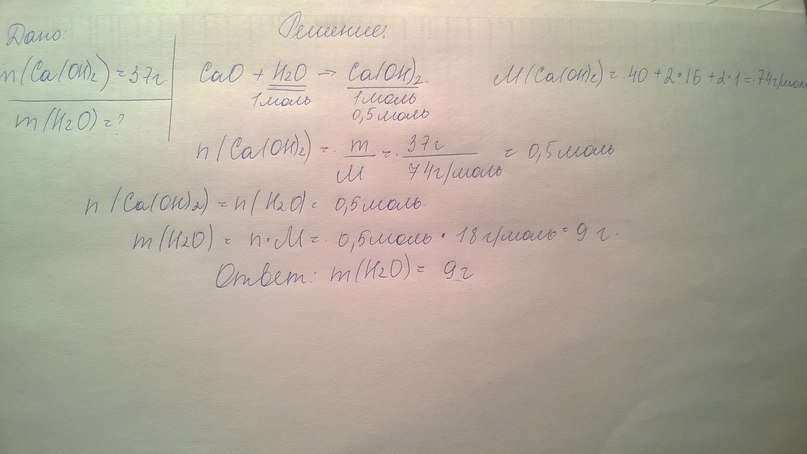 Дано:
Решение:
m(Ca(OH)₂) = 37г
m(H₂O) = ?
CaO + H₂O → Ca(OH)₂.
1моль 1моль
0,5моль
M(Ca(OH)₂) = 40 + 2·16 + 2·1 = 74г/моль
n(Ca(OH)₂) = m/M = 37г/74г/моль = 0,5моль
n(Ca(OH)₂) = n(H₂O) = 0,5моль
m(H₂O) = n·M = 0,5моль · 18г/моль = 9г.
Ответ: m(H₂O) = 9г